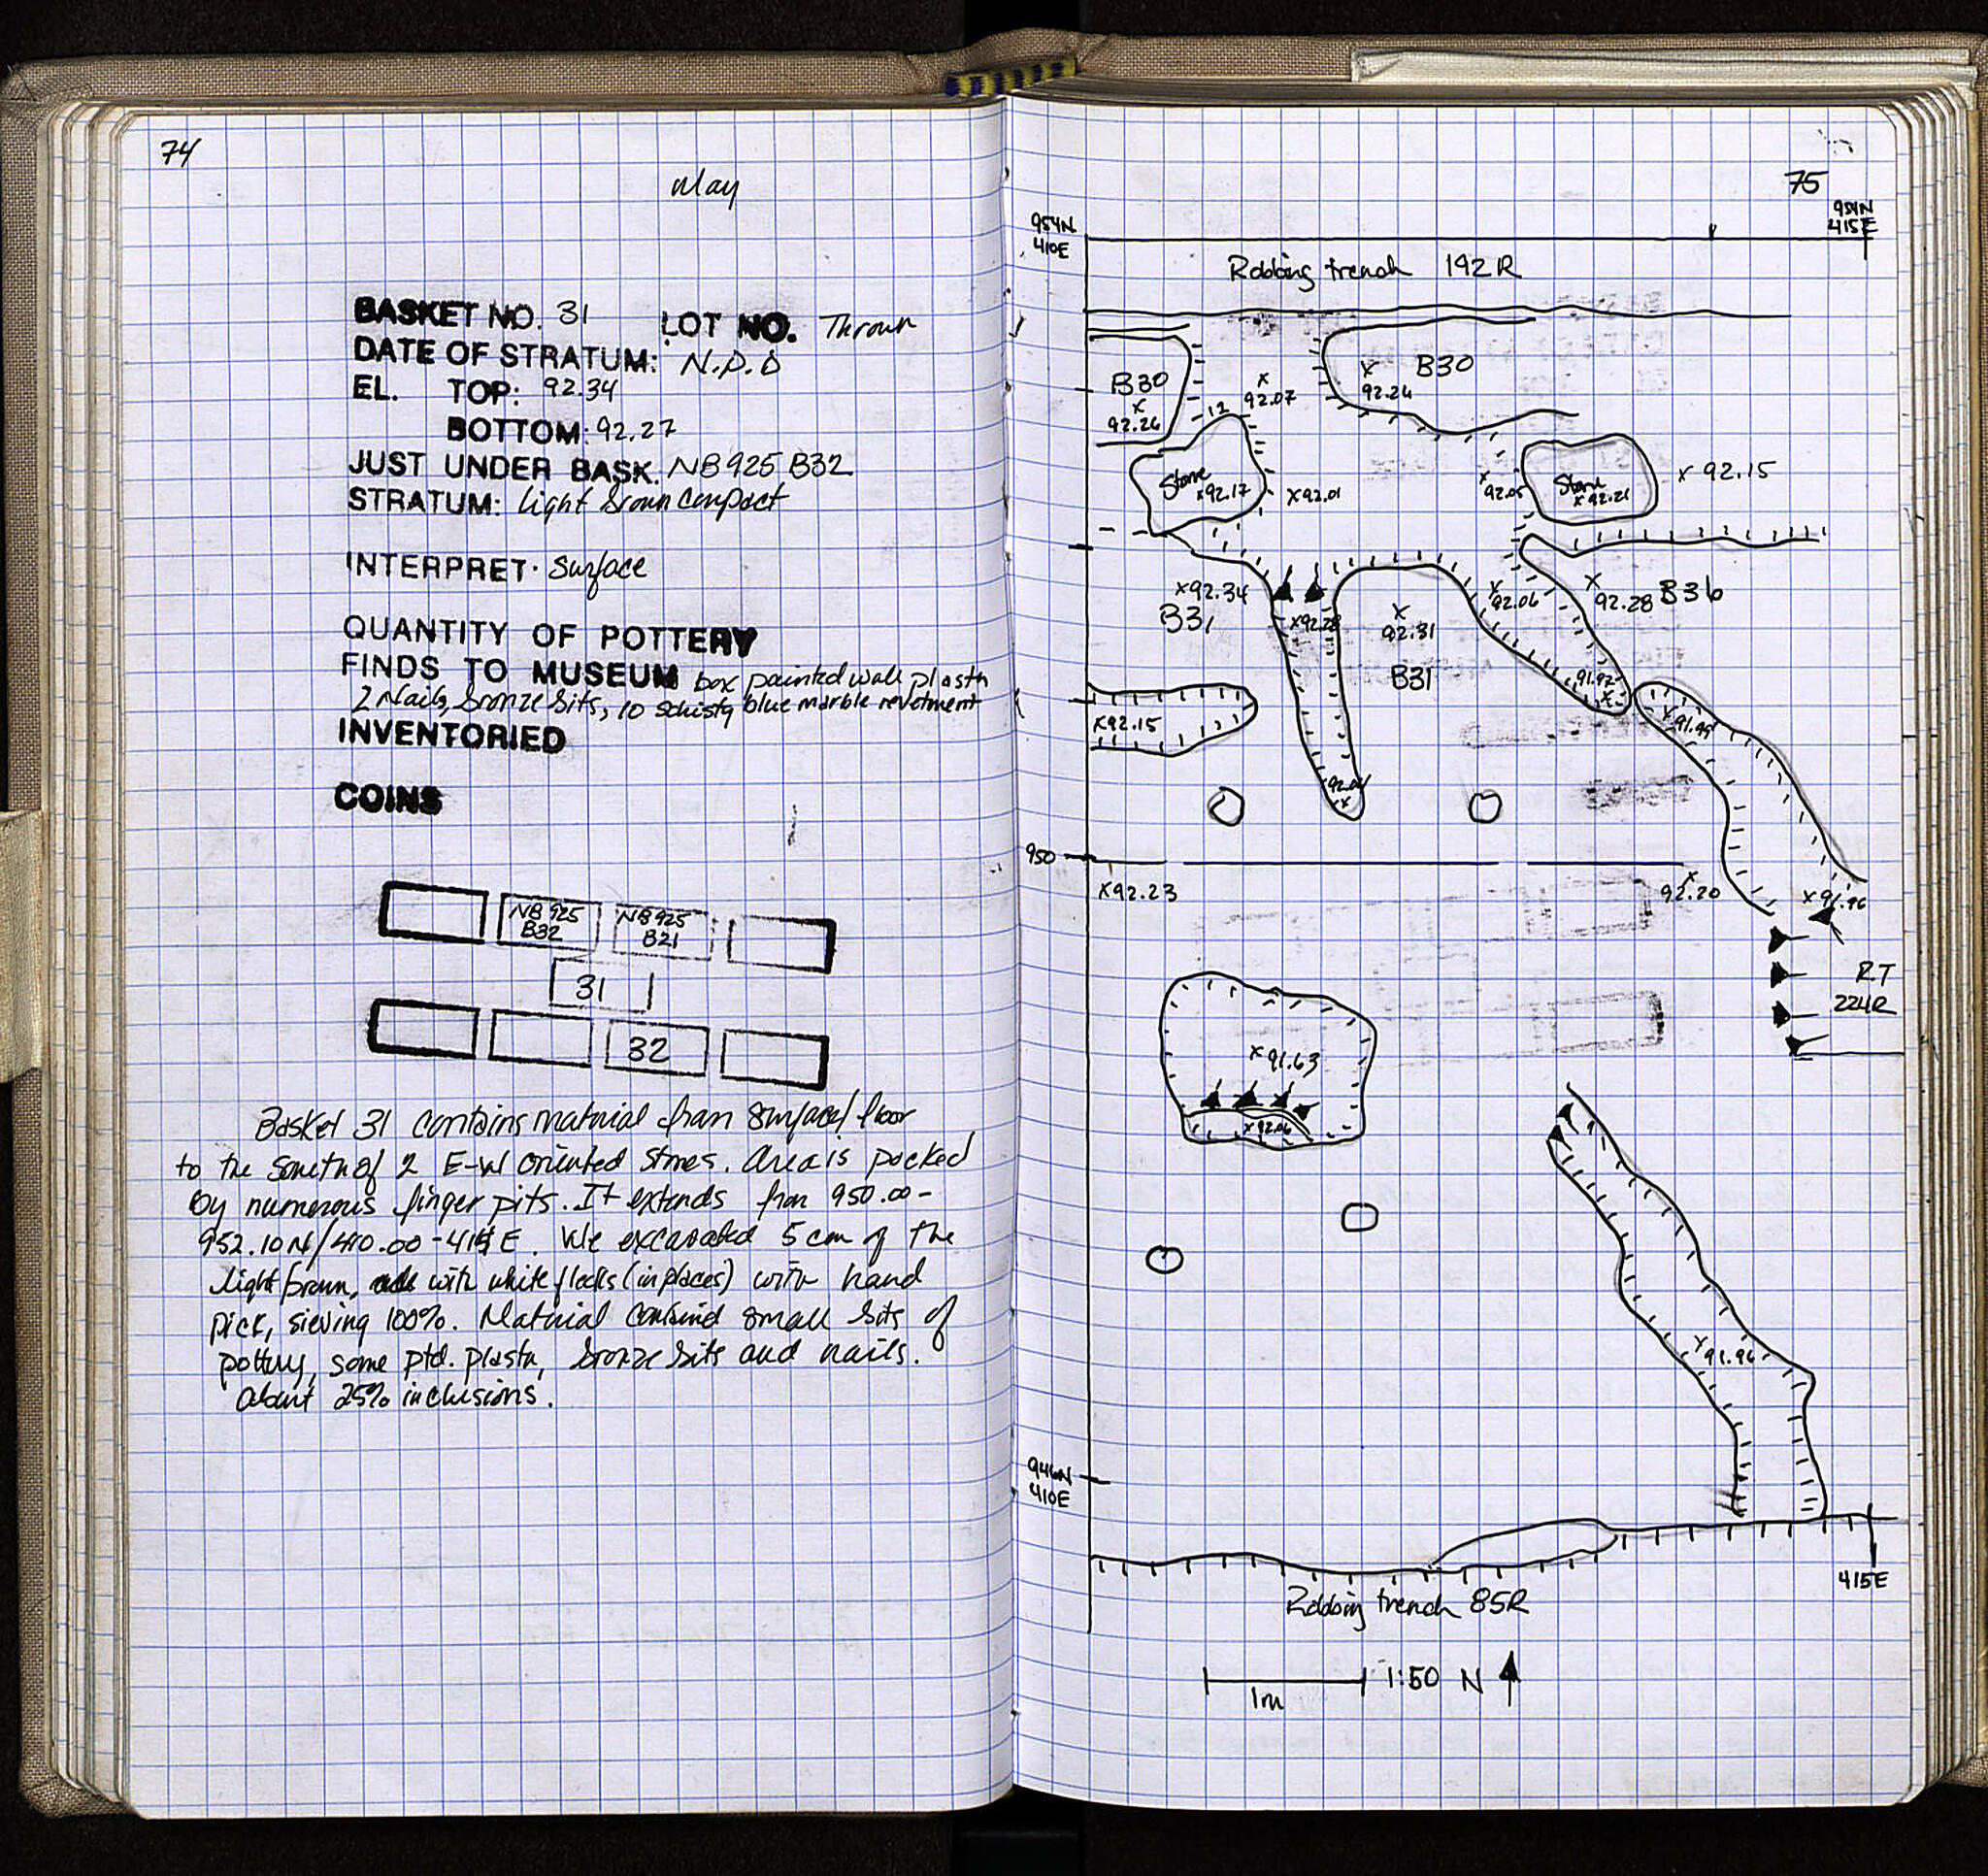 74
May
BASKET NO. 31 LOT NO. Thrown
DATE OF STRATUM: N.P.D
EL. TOP: 92.34
BOTTOM: 92.27
JUST UNDER BASK. NB925 B32
STRATUM: Light brown compact
INTERPRET. Surface
QUANTITY OF POTTERY
FINDS TO MUSEUM box painted wall plaster
2 Nails, bronze bits, 10 schisty blue marble revetment
INVENTORIED
COINS
NB 925 B32
NB 925 B21
31
32
Basket 31 contains material from surface/floor
to the south of 2 E-W oriented stones. Area is pocked
by numerous finger pits. It extends from 950.00-
952.10N/410.00-414E. We excavated 5cm of the
light brown, with white flecks (in places) with hand
pick, sieving 100%. Material contained small bits of
pottery, some ptd. plaster, bronze bits and nails.
about 25% inclusions.
75
954N
410E
954N
415E
Robbing trench 192R
B30
x
92.26
x
92.07
12
x
92.26
B30
Stone
x92.17
x92.01
x
92.05
Stone
x92.21
x 92.15
x92.34
B31
x92.28
x
92.31
B31
x
92.06
x
92.28
B36
91.97
x
x91.95
x92.15
92.04
x
950
x92.23
x
92.20
x91.96
RT
224R
x91.63
x92.06
x
91.96
946N
410E
415E
Robbing trench 85R
1m
1:50 N